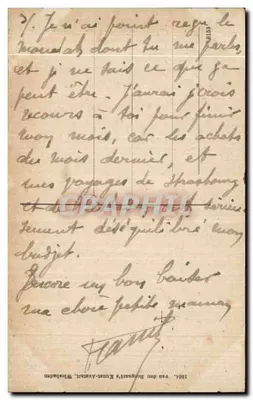 3/. Je n'ai point reçu le
mandat dont tu me parles
et je ne sais ce que ça
peut être. J'aurai je crois
recours à toi pour finir
mon mois, car les achats
du mois dernier, et
mes voyages de Strasbourg
et de
sement déséquilibré mon
budget.
Encore un bon baiser
ma chère petite maman
CPAPHIL
1224. van den Bergh's Kunst-Anstalt, Wiesbaden